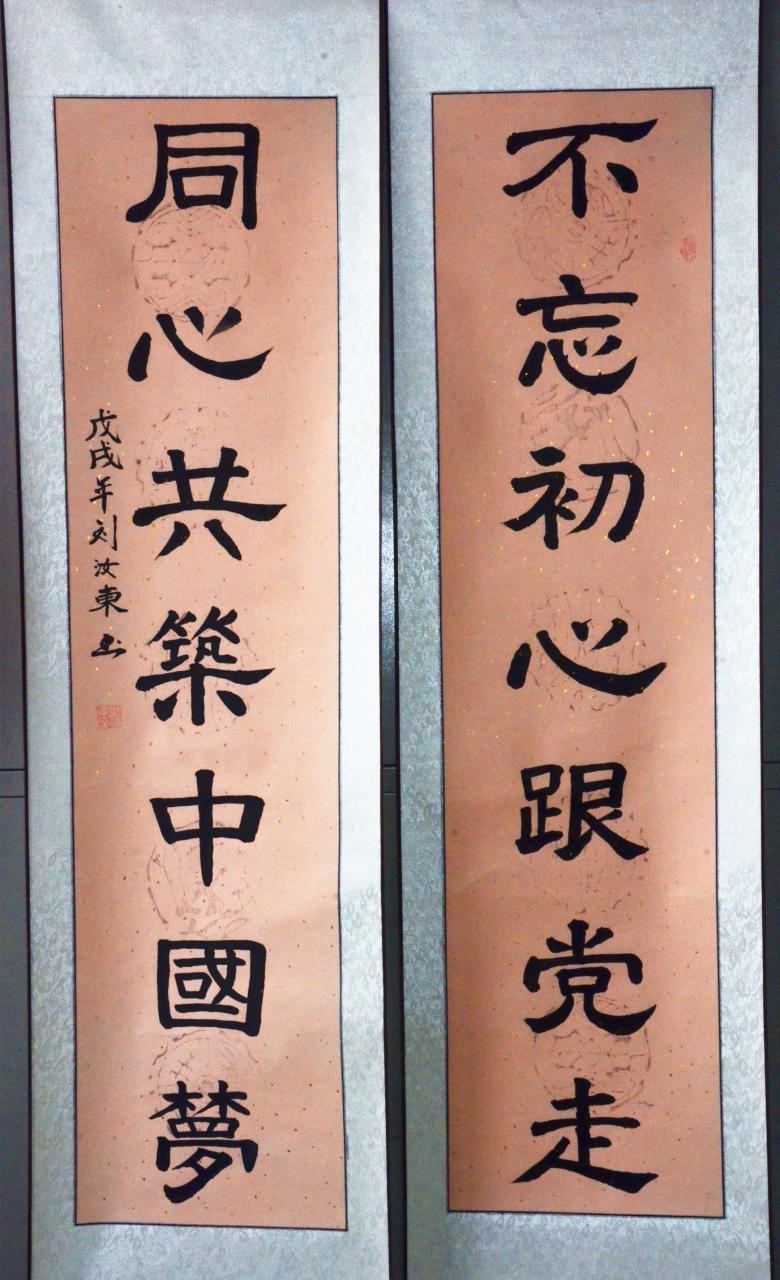 不忘初心跟党走
同心共築中國夢
戊戌年刘汝東书